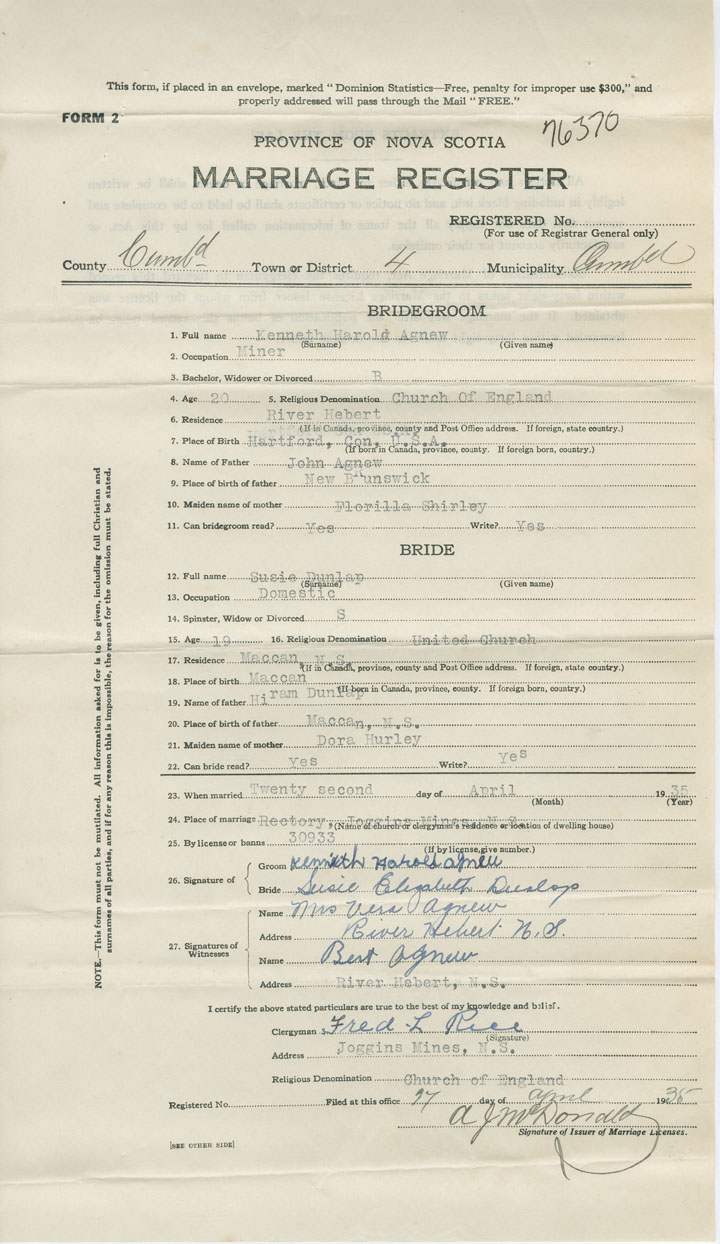 This form, if placed in an envelope, marked "Dominion Statistics—Free, penalty for improper use $300," and
properly addressed will pass through the Mail "FREE."
FORM 2
76370
PROVINCE OF NOVA SCOTIA
MARRIAGE REGISTER
REGISTERED No.
(For use of Registrar General only)
County Cumb'd Town or District 4 Municipality
BRIDEGROOM
1. Full name Kenneth Harold Agnew
(Surname) (Given name)
2. Occupation Miner
3. Bachelor, Widower or Divorced B
4. Age 20 5. Religious Denomination Church Of England
6. Residence River Hebert
(If in Canada, province, county and Post Office address. If foreign, state country.)
7. Place of Birth Hartford, Con, U.S.A.
(If born in Canada, province, county. If foreign born, country.)
8. Name of Father John Agnew
9. Place of birth of father New BRunswick
10. Maiden name of mother Florilla Shirley
11. Can bridegroom read? Yes Write? Yes
BRIDE
12. Full name Susie Dunlap
(Surname) (Given name)
13. Occupation Domestic
14. Spinster, Widow or Divorced S
15. Age 19 16. Religious Denomination United Church
17. Residence Maccan, N.S.
(If in Canada, province, county and Post Office address. If foreign, state country.)
18. Place of birth Maccan
(If born in Canada, province, county. If foreign born, country.)
19. Name of father Hiram Dunlap
20. Place of birth of father Maccan, N.S.
21. Maiden name of mother Dora Hurley
22. Can bride read? Yes Write? Yes
23. When married Twenty second day of April 1935
(Month) (Year)
24. Place of marriage Rectory, Joggins Mines, N.S.
(Name of church or clergyman's residence or location of dwelling house)
25. By license or banns 30933
(If by license, give number.)
26. Signature of
Groom Kenneth Harold Agnew
Bride Susie Elizabeth Dunlop
27. Signatures of Witnesses
Name Mrs Vera Agnew
Address River Hebert N.S.
Name Bert Agnew
Address River Hebert, N.S.
I certify the above stated particulars are true to the best of my knowledge and belief.
Clergyman Fred L Rice
(Signature)
Address Joggins Mines, N.S.
Religious Denomination Church of England
Registered No. Filed at this office 27 day of April 1935
A J McDonald
Signature of Issuer of Marriage Licenses.
[SEE OTHER SIDE]
NOTE.—This form must not be mutilated. All information asked for is to be given, including full Christian and
surnames of all parties, and if for any reason this is impossible, the reason for the omission must be stated.